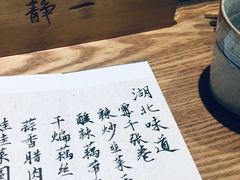 静一
湖北味道
霉千张卷
辣炒韭菜
酸辣藕带
干煸藕丝
蒜香腊肉